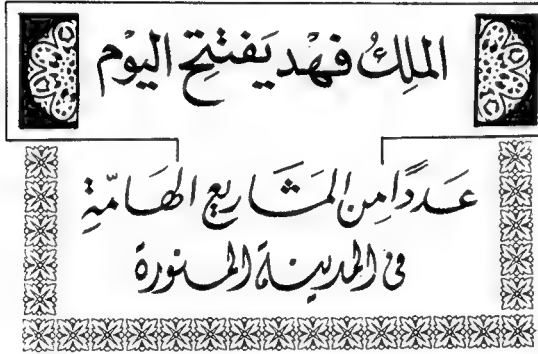 الملك فهد يَفتتِح اليوْم
عَددًا من المَشَاريع الهَامّةِ
في المدينة المنورة